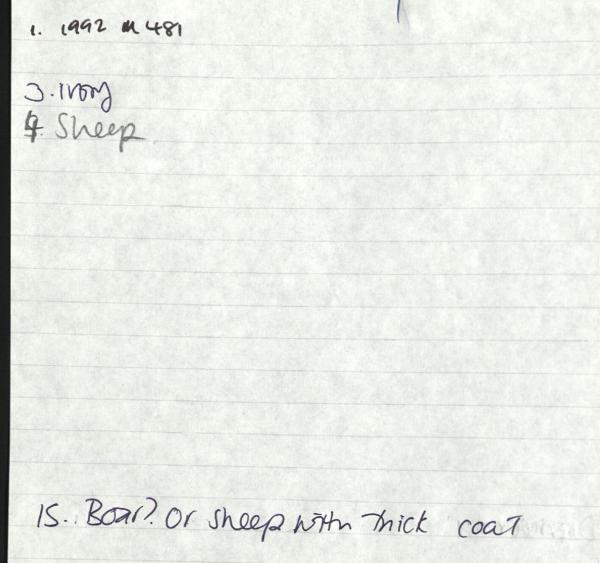 1. 1992 M 481
3. Ivory
4. Sheep
15. Boar? or sheep with thick coat